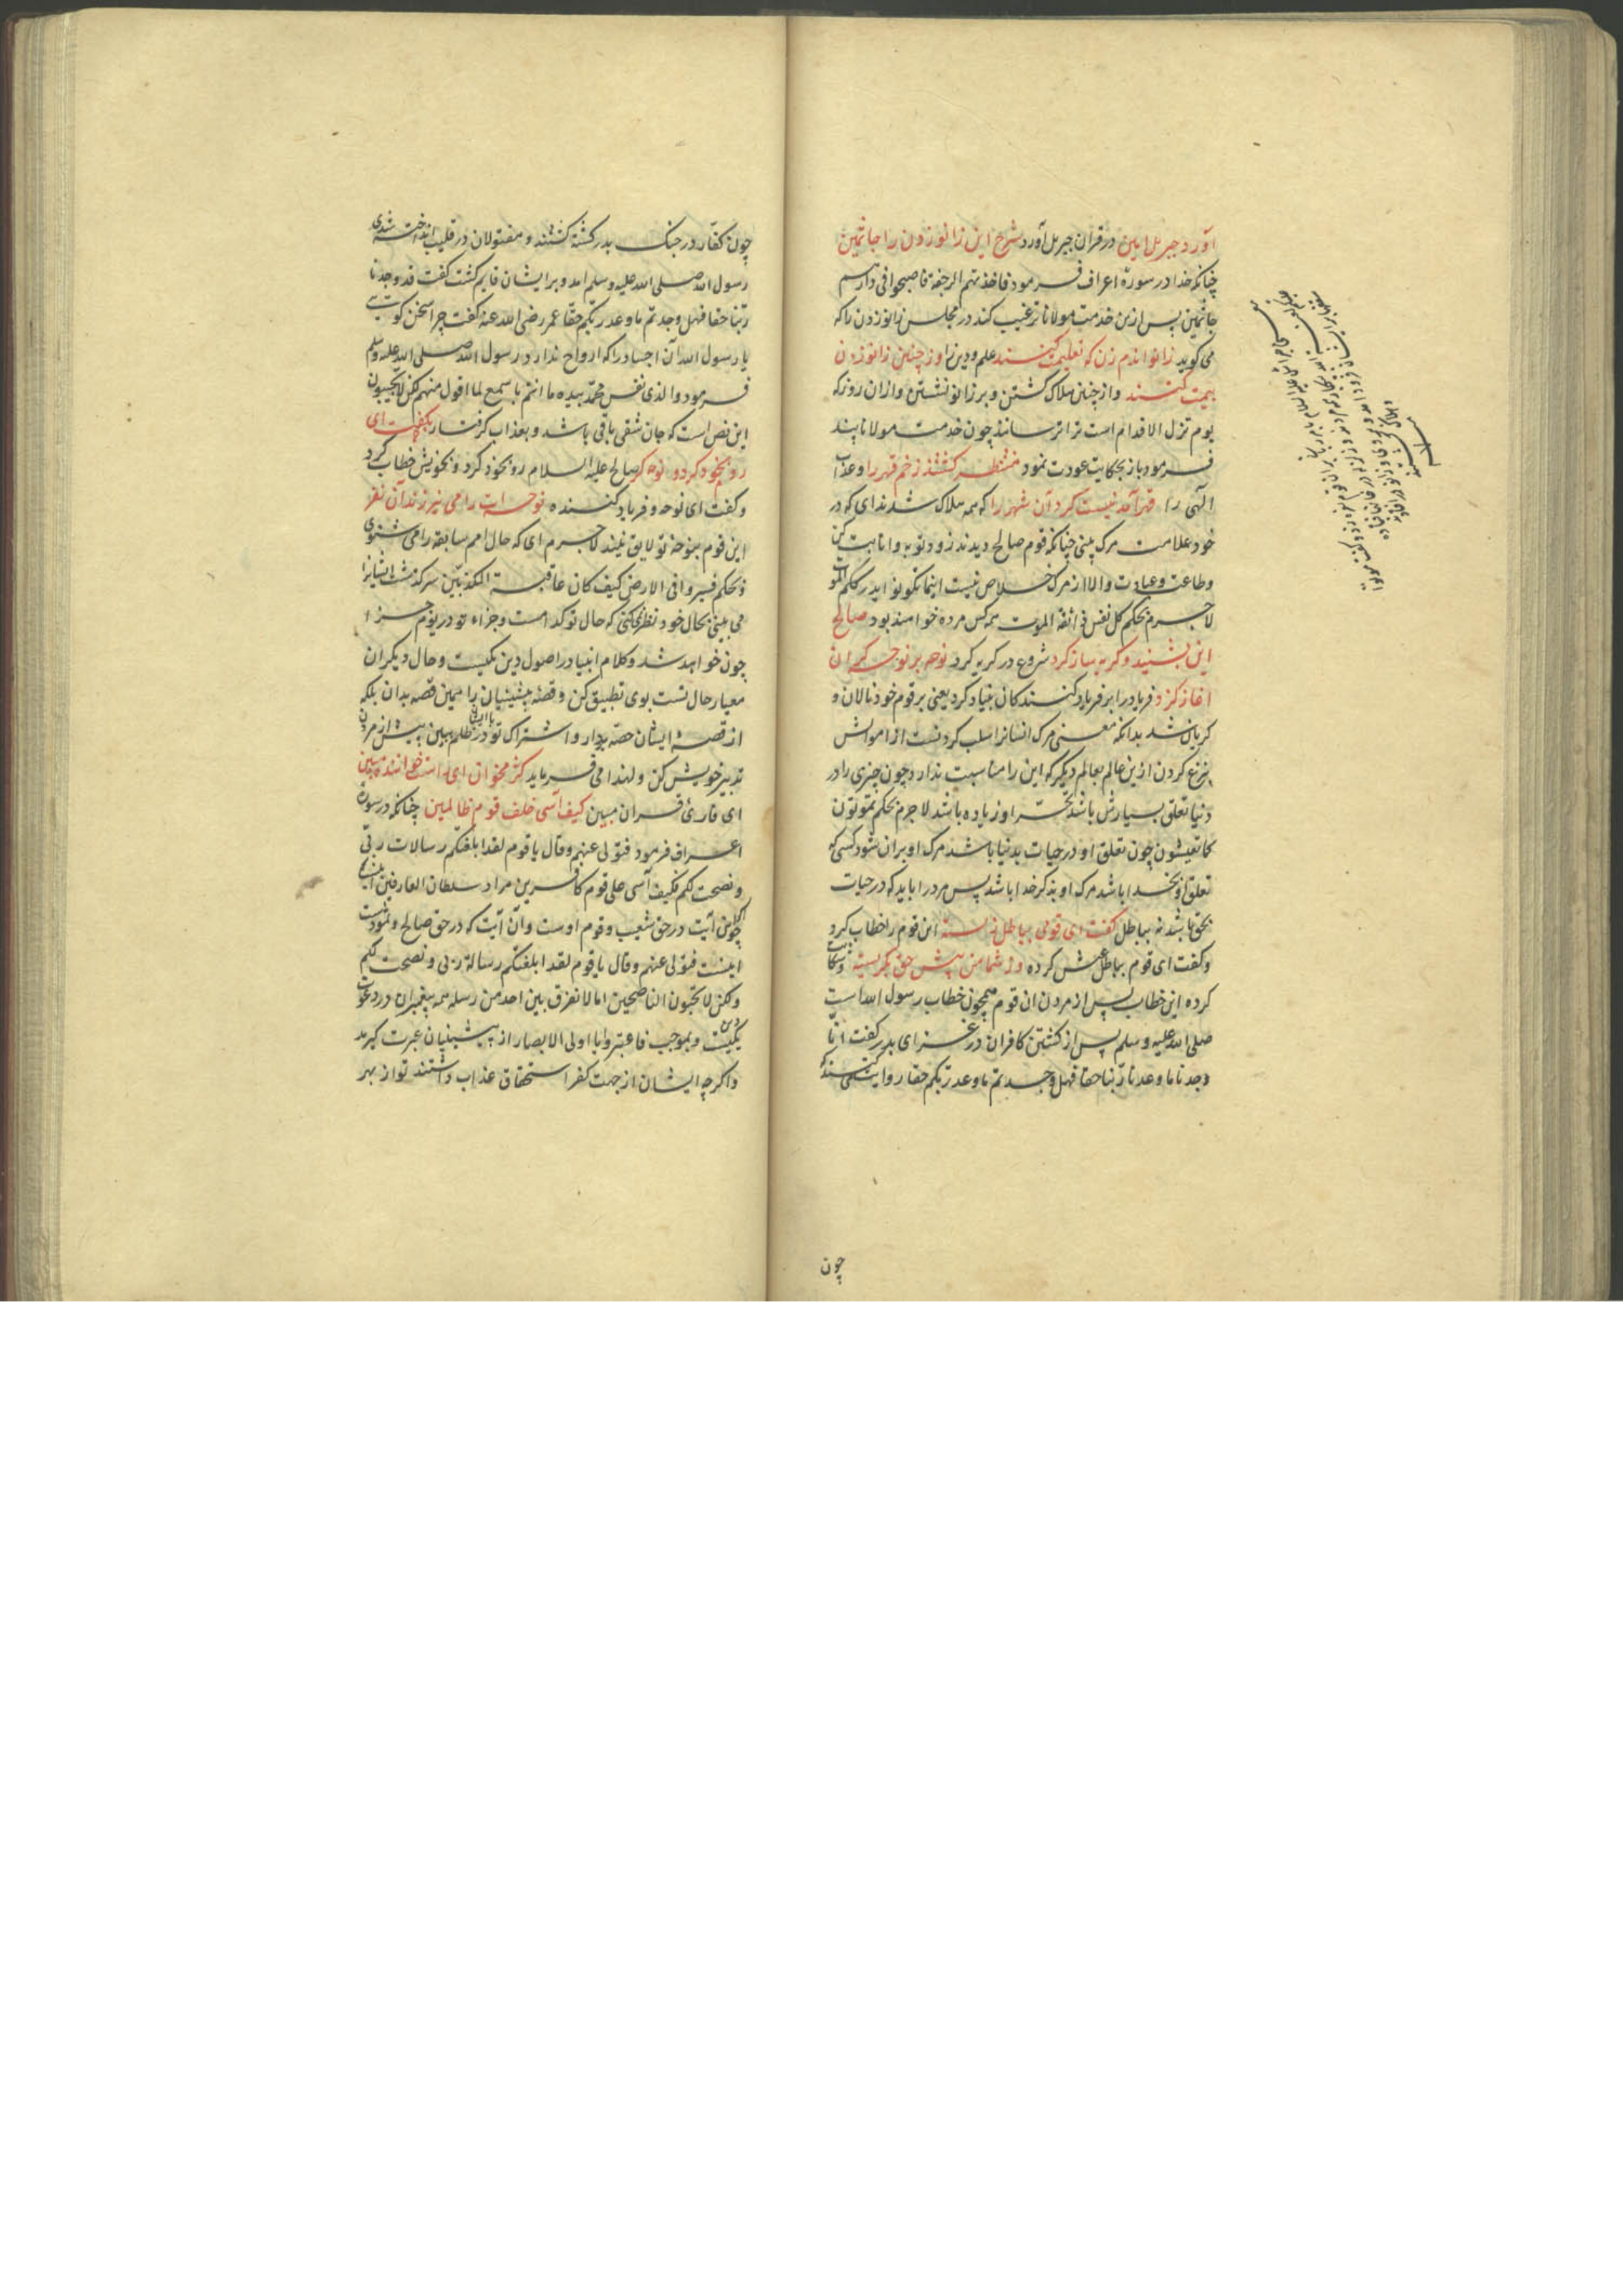 آورد جبریل امین در قران جبریل آورد شرح این زانو زدن را جاثمین
چنانکه خدا در سورهٔ اعراف فرمود فاخذتهم الرجفة فاصبحوا فی دارهم
جاثمین پس ازین خدمت مولانا ترغیب کند در مجلس زانو زدن ما که
می کوید زانو اندم زن که تعلیمت کنند علم و دین را وز چنین زانو زدن
بیمت کنند و از چنین هلاک کشتن و بر زانو نشستن و ازان روز که
یوم تزل الاقدام است ترا ترسانند چون خدمت مولانا پند
فرمود باز بحکایت عودت نمود منتظر کشتند زخم قهر را و عذاب
الهی را قهر آمد نیست کرد آن شهر را که همه هلاک شدند ای که در
خود علامت مرک بینی چنانکه قوم صالح دیدند زود توبه و انابت کن
و طاعت و عبادت والا از مرک خلاص نیست اینما تکونوا یدرککم الموت
لاجرم بحکم کل نفس ذائقة الموت همه کس مرده خواهند بود صالح
این بشنید و کریه ساز کرد شروع در کریه کرد نوحه بر نوحه کران
اغاز کرد فریاد را بر فریاد کنندکان بنیاد کرد یعنی بر قوم خود نالان و
کریان شد بدانکه معنی مرک انسانرا سلب کردنست از اموالش
بنزع کردن ازین عالم بعالم دیکر که این را مناسبت ندارد چون چیزی را در
دنیا تعلق بسیارش باشد تحسر او زیاده باشد لاجرم بحکم تموتون
کما تعیشون چون تعلق او در حیات بدنیا باشد مرک او بران شود کسی که
تعلق او بخدا باشد مرک او بذکر خدا باشد پس مرد را باید که در حیات
بحق باشد نه بباطل کفت ای قومی بباطل زیسته این قوم را خطاب کرد
و کفت ای قوم بباطل عیش کرده وز شما من پیش حق بکریسته و شکایت
کرده این خطاب پس از مردن ان قوم همچون خطاب رسول الله است
صلی الله علیه و سلم پس از کشتن کافران در غزای بدر کفت انا
وجدنا ما وعدنا ربنا حقا فهل وجدتم ما وعد ربکم حقا روایت کنند که
چون
چون کفار در جنک بدر کشته کشتند و مقتولان در قلیب انداخته شدی
رسول الله صلی الله علیه و سلم امد و بر ایشان قایم کشت کفت قد وجدنا
ربنا حقا فهل وجدتم ما وعد ربکم حقا عمر رضی الله عنه کفت چرا سخن کویی
یا رسول الله آن اجساد را که ارواح ندارد رسول الله صلی الله علیه وسلم
فرمود والذی نفس محمد بیده ما انتم باسمع لما اقول منهم لکن لا یجیبون
این نص است که جان شقی باقی باشد و بعذاب کرفتار بکفت ای
رو بخود کرد و نوحه کر صالح علیه السلام رو بخود کرد و بخویش خطاب کرد
و کفت ای نوحه و فریاد کننده نوحه ات را می نیرزند آن نفر
این قوم بنوحه تو لایق نیند لاجرم ای که حال امم سابقه را می شنوی
و بحکم فسیروا فی الارض کیف کان عاقبة المکذبین سرکذشت ایشانرا
می بینی بحال خود نظر نمی کنی که حال تو کدامست و جزاء تو در یوم جزا
چون خواهد شد و کلام انبیا در اصول دین یکیست و حال دیکران
معیار حال تست بوی تطبیق کن و قصهٔ پیشینیان را همین قصه بدان بلکه
از قصهٔ ایشان حصه بردار و اشتراک تو با ایشان در ظلم ببین پیش از مردن
تدبیر خویش کن و لهذا می فرماید کژ مخوان ای راست خواننده ببین
ای قاریٔ قران مبین کیف آسی خلف قوم ظالمین چنانکه در سورهٔ
اعراف فرمود فتولی عنهم و قال یا قوم لقد ابلغتکم رسالات ربی
و نصحت لکم فکیف آسی علی قوم کافرین مراد سلطان العارفین اینست
اکر چه این آیت در حق شعیب و قوم اوست و آن آیت که در حق صالح و ثمود است
اینست فتولی عنهم و قال یا قوم لقد ابلغتکم رسالة ربی و نصحت لکم
و لکن لا تحبون الناصحین اما لا نفرق بین احد من رسله همه پیغمبران در دعوت
دین یکیست و بموجب فاعتبروا یا اولی الابصار از پیشینیان عبرت کیرند
و اکر چه ایشان از جهت کفر استحقاق عذاب داشتند تو از بهر